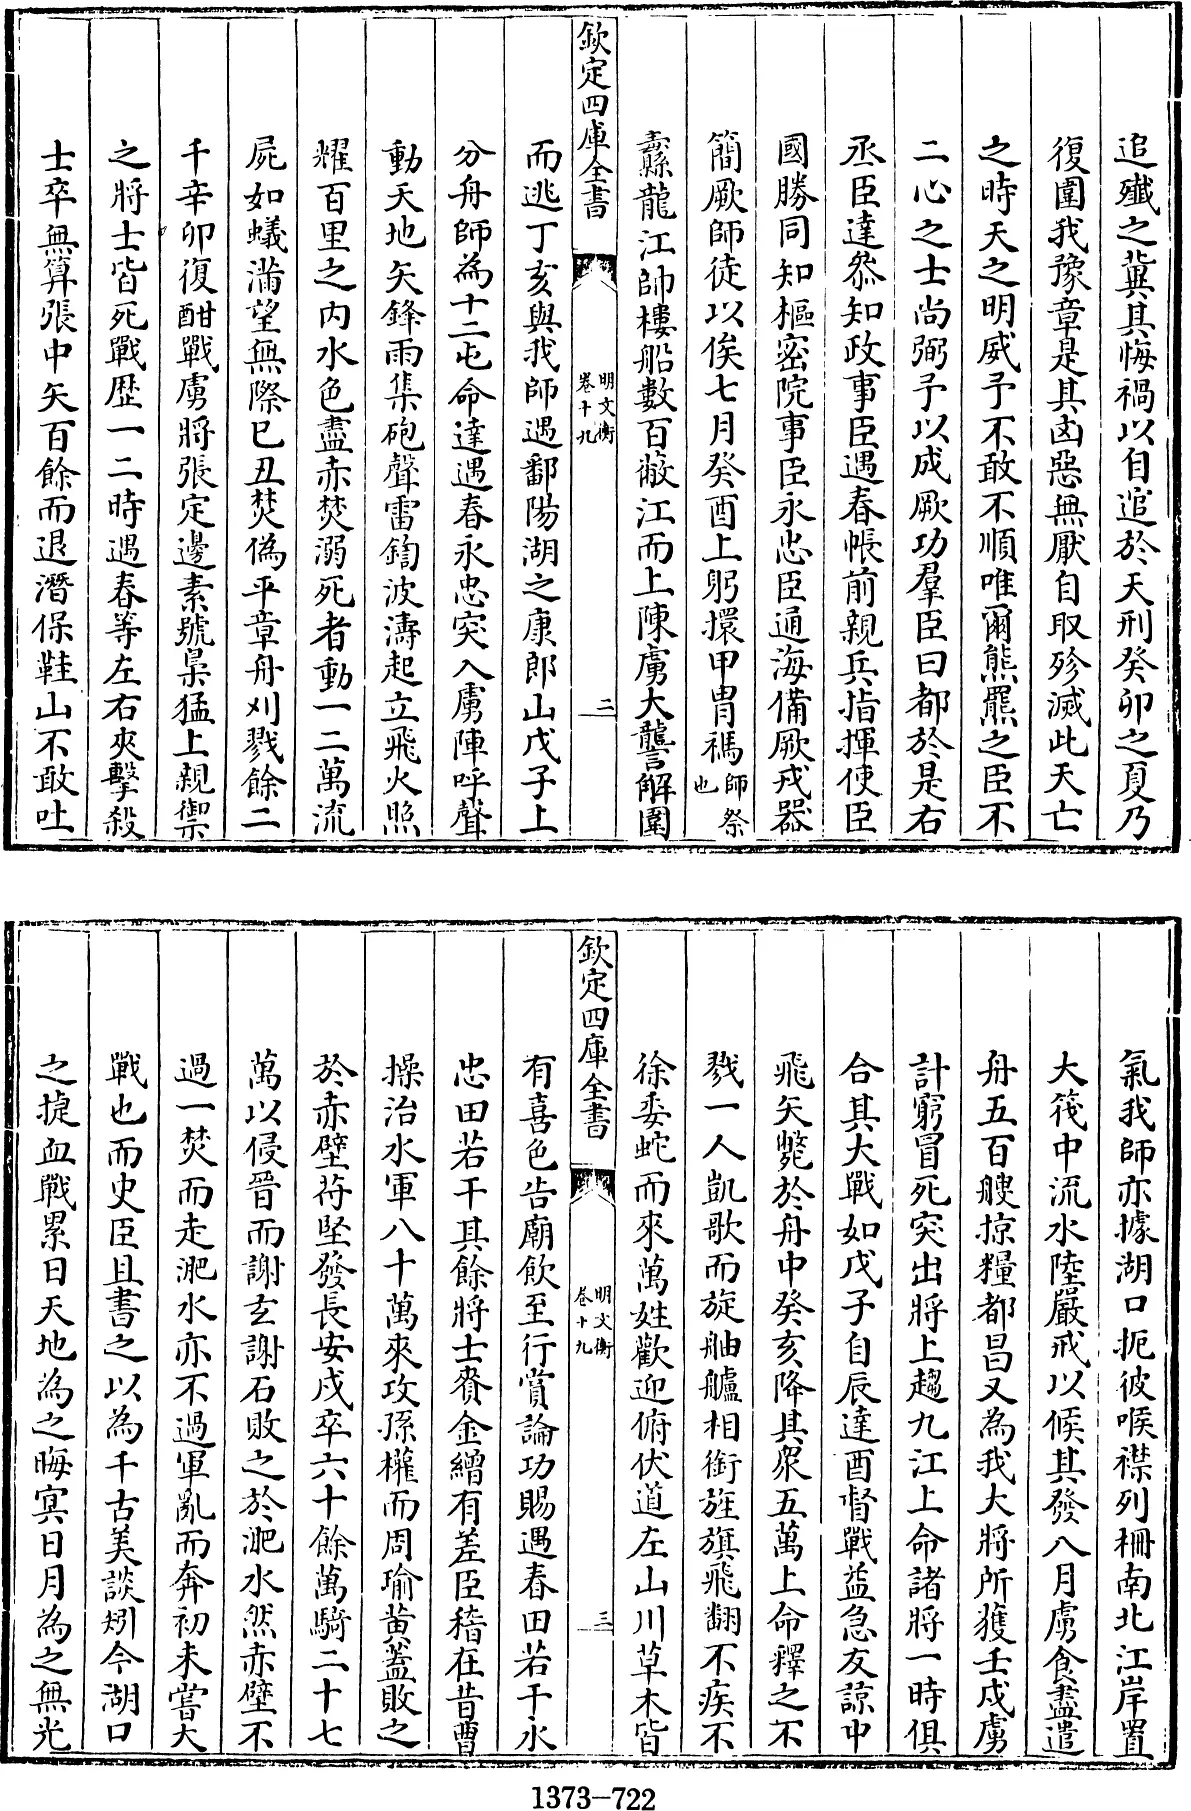 追殱之冀其悔禍以自逭於天刑癸卯之夏乃
復圍我豫章是其凶惡無厭自取殄滅此天亡
之時天之明威予不敢不順唯爾熊羆之臣不
二心之士尚弼予以成厥功羣臣曰都於是右
丞臣達叅知政事臣遇春帳前親兵指揮使臣
國勝同知樞密院事臣永忠臣通海備厥戎器
簡厥師徒以俟七月癸酉上躬擐甲胄禡師祭也
纛龍江帥樓船數百蔽江而上陳虜大讋解圍
欽定四庫全書
明文衡
卷十九
二
而逃丁亥與我師遇鄱陽湖之康郎山戊子上
分舟師為十二屯命達遇春永忠突入虜陣呼聲
動天地矢鋒雨集砲聲雷鍧波濤起立飛火照
耀百里之内水色盡赤焚溺死者動一二萬流
屍如蟻滿望無際巳丑焚偽平章舟刈戮餘二
千辛卯復酣戰虜將張定邊素號梟猛上親禦
之將士皆死戰歴一二時遇春等左右夾擊殺
士卒無算張中矢百餘而退潛保鞋山不敢吐
氣我師亦據湖口扼彼喉襟列栅南北江岸置
大筏中流水陸嚴戒以候其發八月虜食盡遣
舟五百艘掠糧都昌又為我大將所獲壬戌虜
計窮冒死突出將上趨九江上命諸將一時俱
合其大戰如戊子自辰達酉督戰益急友諒中
飛矢斃於舟中癸亥降其衆五萬上命釋之不
戮一人凱歌而旋舳艫相銜旌旗飛翻不疾不
徐委蛇而來萬姓歡迎俯伏道左山川草木皆
欽定四庫全書
明文衡
卷十九
三
有喜色告廟飲至行賞論功賜遇春田若干永
忠田若干其餘將士賚金繒有差臣稽在昔曹
操治水軍八十萬來攻孫權而周瑜黄蓋敗之
於赤壁苻堅發長安戍卒六十餘萬騎二十七
萬以侵晉而謝玄謝石敗之於淝水然赤壁不
過一焚而走淝水亦不過軍亂而奔初未嘗大
戰也而史臣且書之以為千古美談矧今湖口
之捷血戰累日天地為之晦冥日月為之無光
1373—722